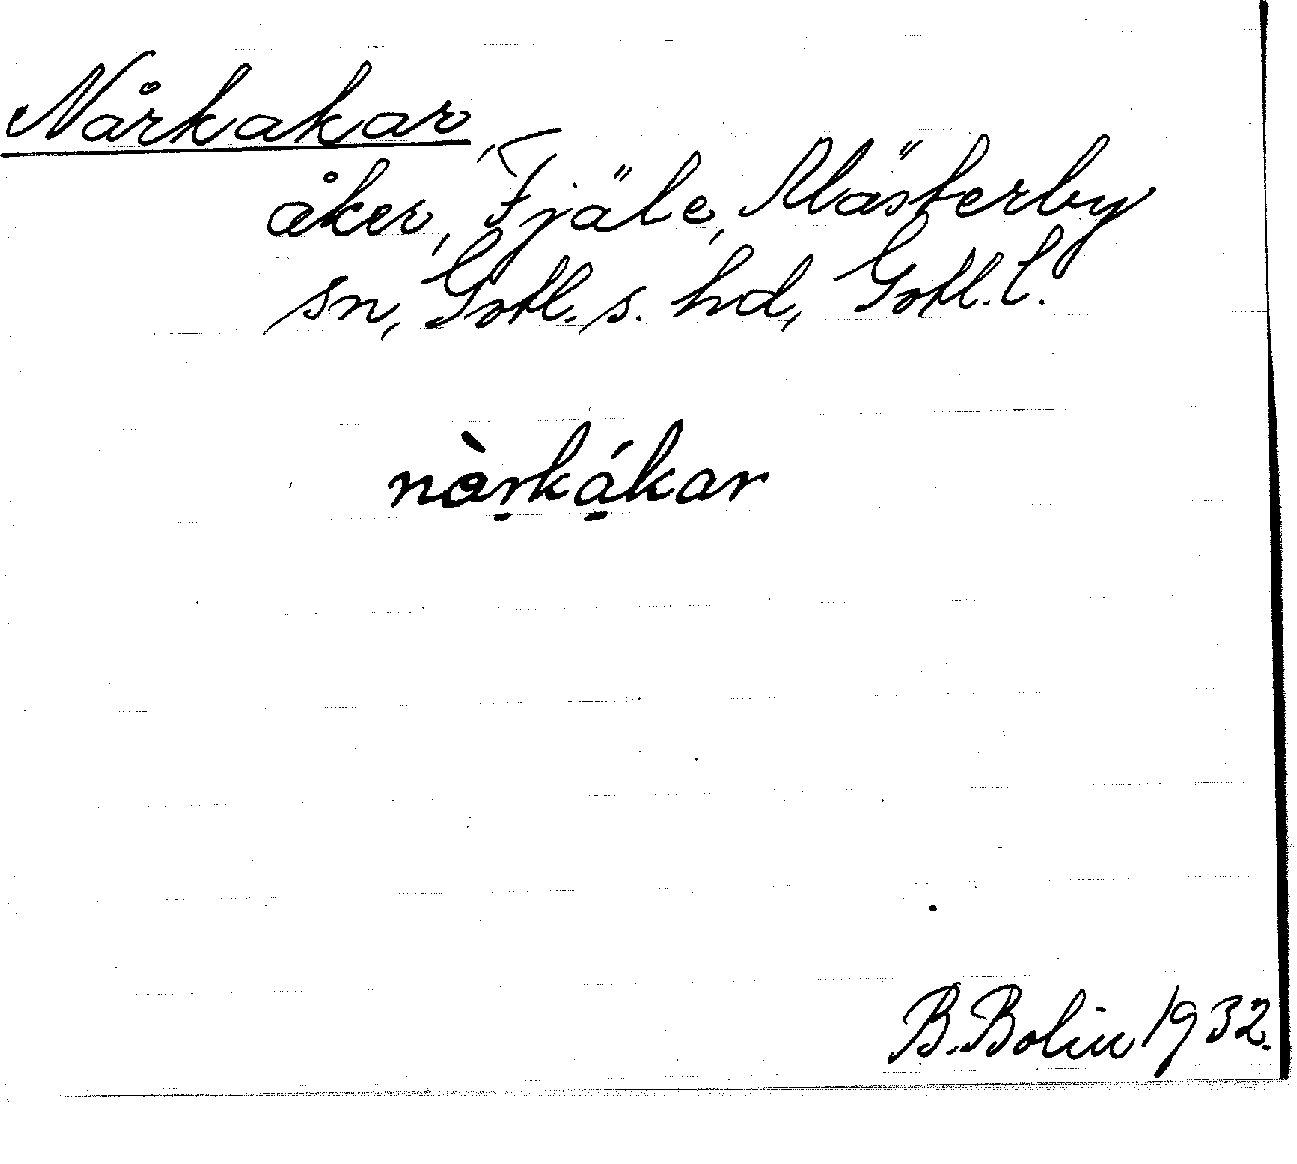 Nårkakar,
åker, Fjäle, Mästerby
sn, Gotl. s. hd, Gotl. l.
nàrkákar
B. Bolin 1932.